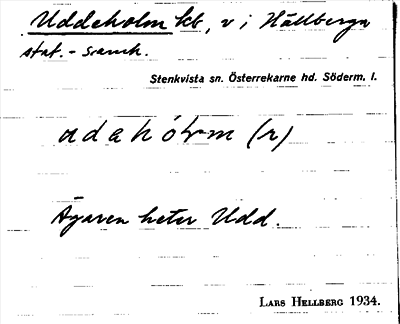 Uddeholm kb, v i Hällberga
stat.-samh.
Stenkvista sn. Österrekarne hd. Söderm. l.
udəhólm (r)
Ägaren heter Udd.
LARS HELLBERG 1934.